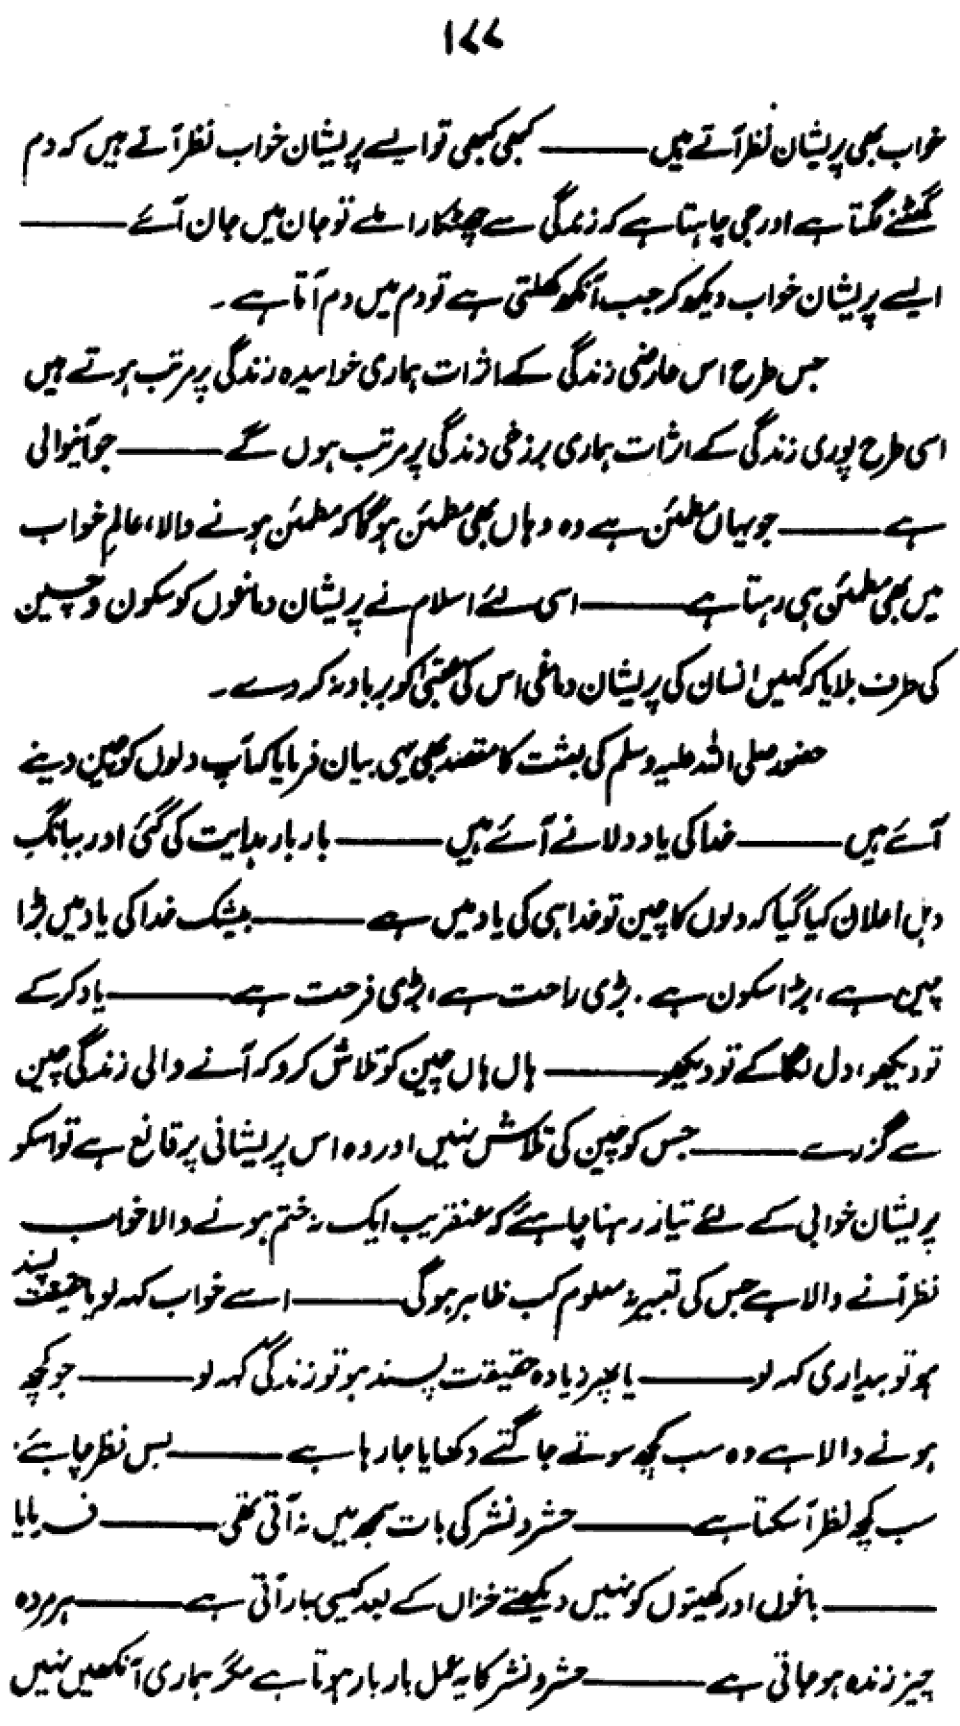 ۱۷۷
خواب بھی پریشان نظر آتے ہیں ـــــــ کبھی کبھی تو ایسے پریشان خواب نظر آتے ہیں کہ دم
گھٹنے لگتا ہے اور جی چاہتا ہے کہ زندگی سے چھٹکارا ملے تو جان میں جان آئے ـــــــ
ایسے پریشان خواب دیکھ کر جب آنکھ کھلتی ہے تو دم میں دم آتا ہے ۔
جس طرح اس عارضی زندگی کے اثرات ہماری خوابیدہ زندگی پر مرتب ہوتے ہیں
اسی طرح پوری زندگی کے اثرات ہماری برزخی زندگی پر مرتب ہوں گے ـــــــ جو آنیوالی
ہے ـــــــ جو یہاں مطمئن ہے وہ وہاں بھی مطمئن ہوگا کہ مطمئن ہونے والا، عالمِ خواب
میں بھی مطمئن ہی رہتا ہے ـــــــ اسی لئے اسلام نے پریشان دماغوں کو سکون و چین
کی طرف بلایا کہ کہیں انسان کی پریشان دماغی اس کی عقبیٰ کو برباد نہ کر دے ۔
حضور صلی اللہ علیہ وسلم کی بعثت کا مقصد بھی یہی بیان فرمایا کہ آپ دلوں کو چین دینے
آئے ہیں ـــــــ خدا کی یاد دلانے آئے ہیں ـــــــ بار بار ہدایت کی گئی اور ببانگِ
دہل اعلان کیا گیا کہ دلوں کا چین تو خدا ہی کی یاد میں ہے ـــــــ بیشک خدا کی یاد میں بڑا
چین ہے، بڑا سکون ہے ، بڑی راحت ہے، بڑی فرحت ہے ـــــــ یاد کر کے
تو دیکھو، دل لگا کے تو دیکھو ـــــــ ہاں ہاں چین کو تلاش کرو کہ آنے والی زندگی چین
سے گزرے ـــــــ جس کو چین کی تلاش نہیں اور وہ اس پریشانی پر قانع ہے تو اسکو
پریشان خوابی کے لئے تیار رہنا چاہئے کہ عنقریب ایک نہ ختم ہونے والا خواب
نظر آنے والا ہے جس کی تعبیر نہ معلوم کب ظاہر ہوگی ـــــــ اسے خواب کہہ لو یا حقیقت پسند
ہو تو بیداری کہہ لو ـــــــ یا پھر زیادہ حقیقت پسند ہو تو زندگی کہہ لو ـــــــ جو کچھ
ہونے والا ہے وہ سب کچھ سوتے جاگتے دکھایا جا رہا ہے ـــــــ بس نظر چاہئے،
سب کچھ نظر آسکتا ہے ـــــــ حشر و نشر کی بات سمجھ میں نہ آتی تھی ـــــــ فرمایا
ـــــــ باغوں اور کھیتوں کو نہیں دیکھتے خزاں کے بعد کیسی بہار آتی ہے ـــــــ ہر مردہ
چیز زندہ ہو جاتی ہے ـــــــ حشر و نشر کا یہ عمل بار بار ہوتا ہے مگر ہماری آنکھیں نہیں